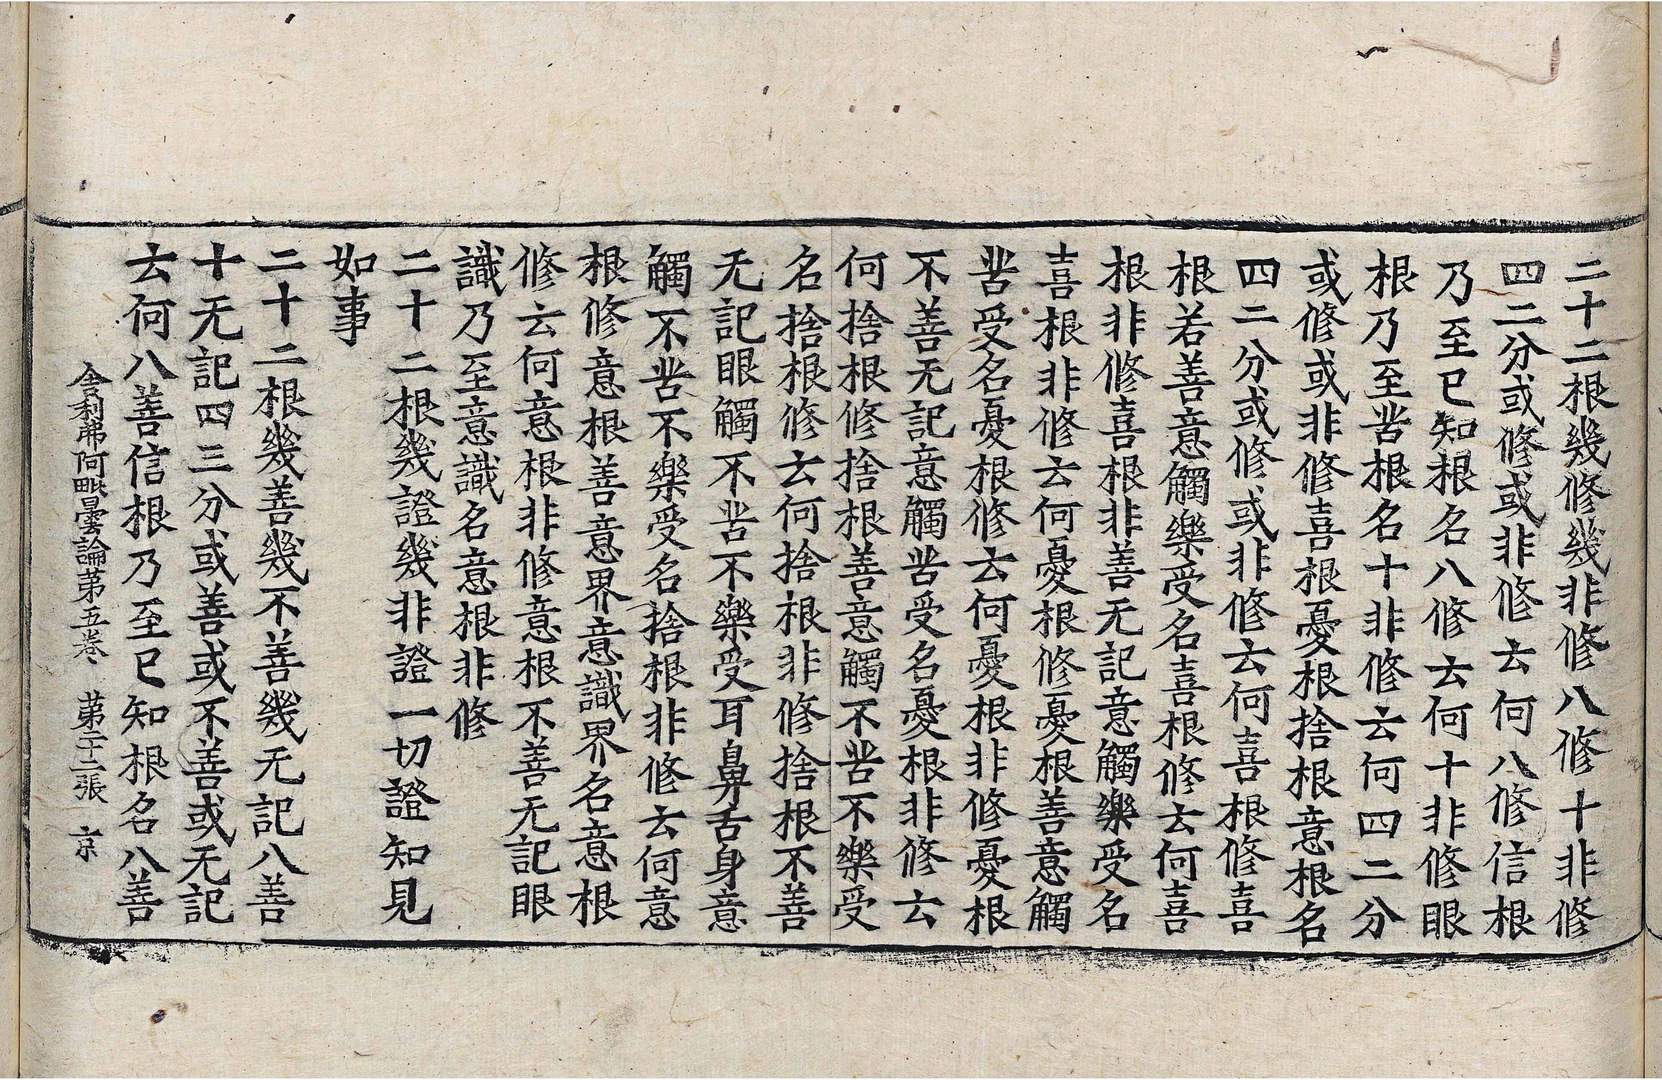 二十二根幾修幾非修八修十非修
四二分或修或非修云何八修信根
乃至已知根名八修云何十非修眼
根乃至苦根名十非修云何四二分
或修或非修喜根憂根捨根意根名
四二分或修或非修云何喜根修喜
根若善意觸樂受名喜根修云何喜
根非修喜根非善无記意觸樂受名
喜根非修云何憂根修憂根善意觸
苦受名憂根修云何憂根非修憂根
不善无記意觸苦受名憂根非修云
何捨根修捨根善意觸不苦不樂受
名捨根修云何捨根非修捨根不善
无記眼觸不苦不樂受耳鼻舌身意
觸不苦不樂受名捨根非修云何意
根修意根善意界意識界名意根
修云何意根非修意根不善无記眼
識乃至意識名意根非修
二十二根幾證幾非證一切證知見
如事
二十二根幾善幾不善幾无記八善
十无記四三分或善或不善或无記
云何八善信根乃至已知根名八善
舎利弗阿毗曇論第五卷 第二十二張 京